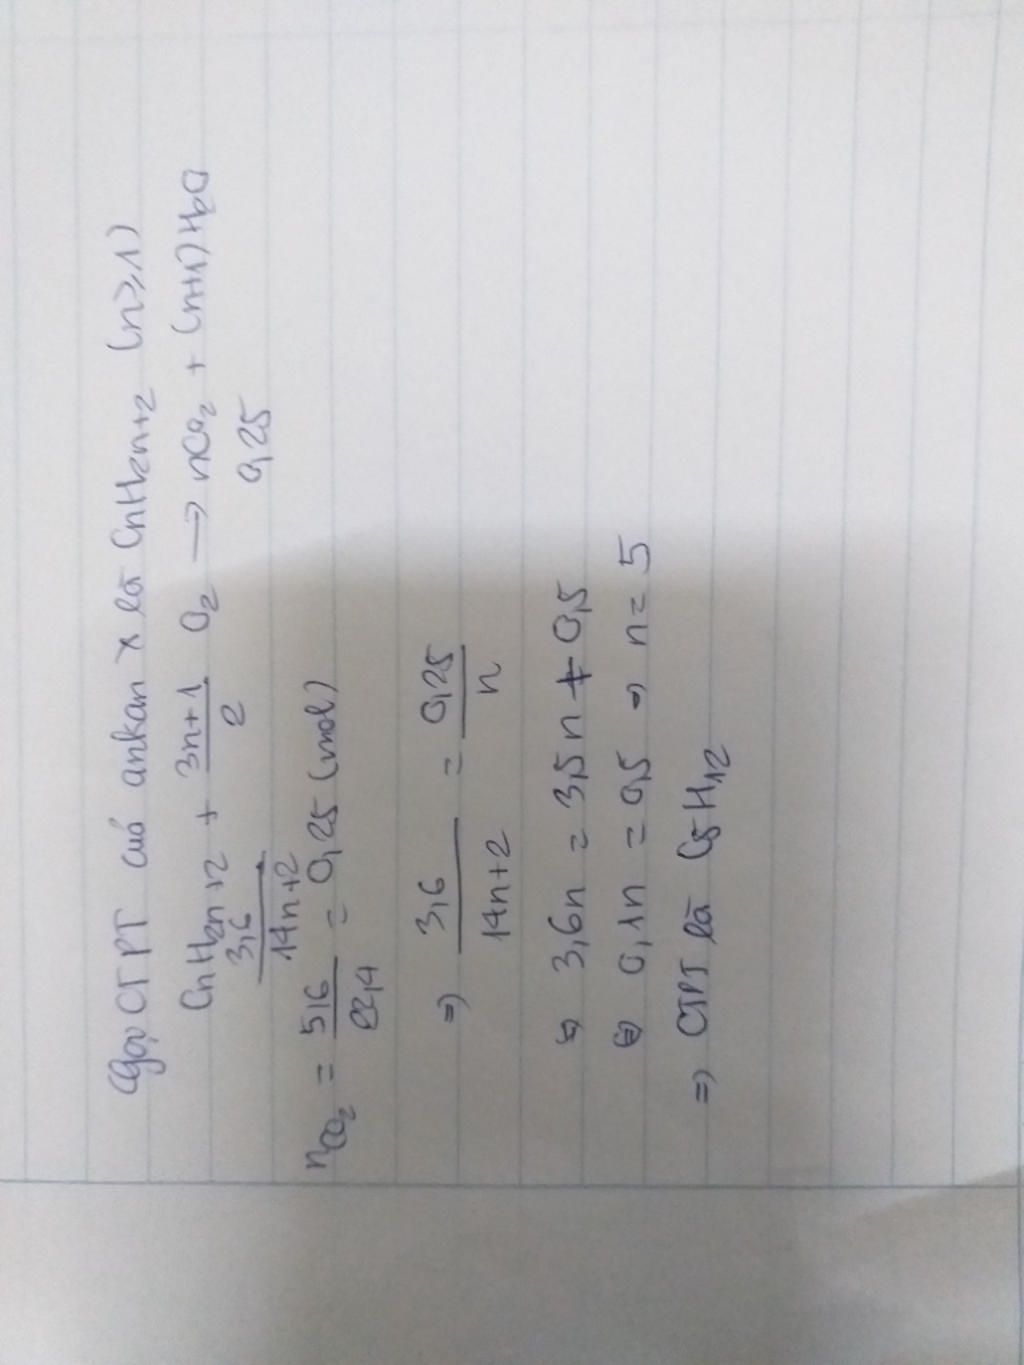 Gọi CTPT của ankan X là CnH2n+2 (n≥1)
CnH2n+2 + \frac{3n+1}{2} O2 → nCO2 + (n+1)H2O
\frac{3,6}{14n+2} 0,25
nCO2 = \frac{5,6}{22,4} = 0,25 (mol)
⇒ \frac{3,6}{14n+2} = \frac{0,25}{n}
⇔ 3,6n = 3,5n + 0,5
⇔ 0,1n = 0,5 ⇒ n = 5
⇒ CTPT là C5H12